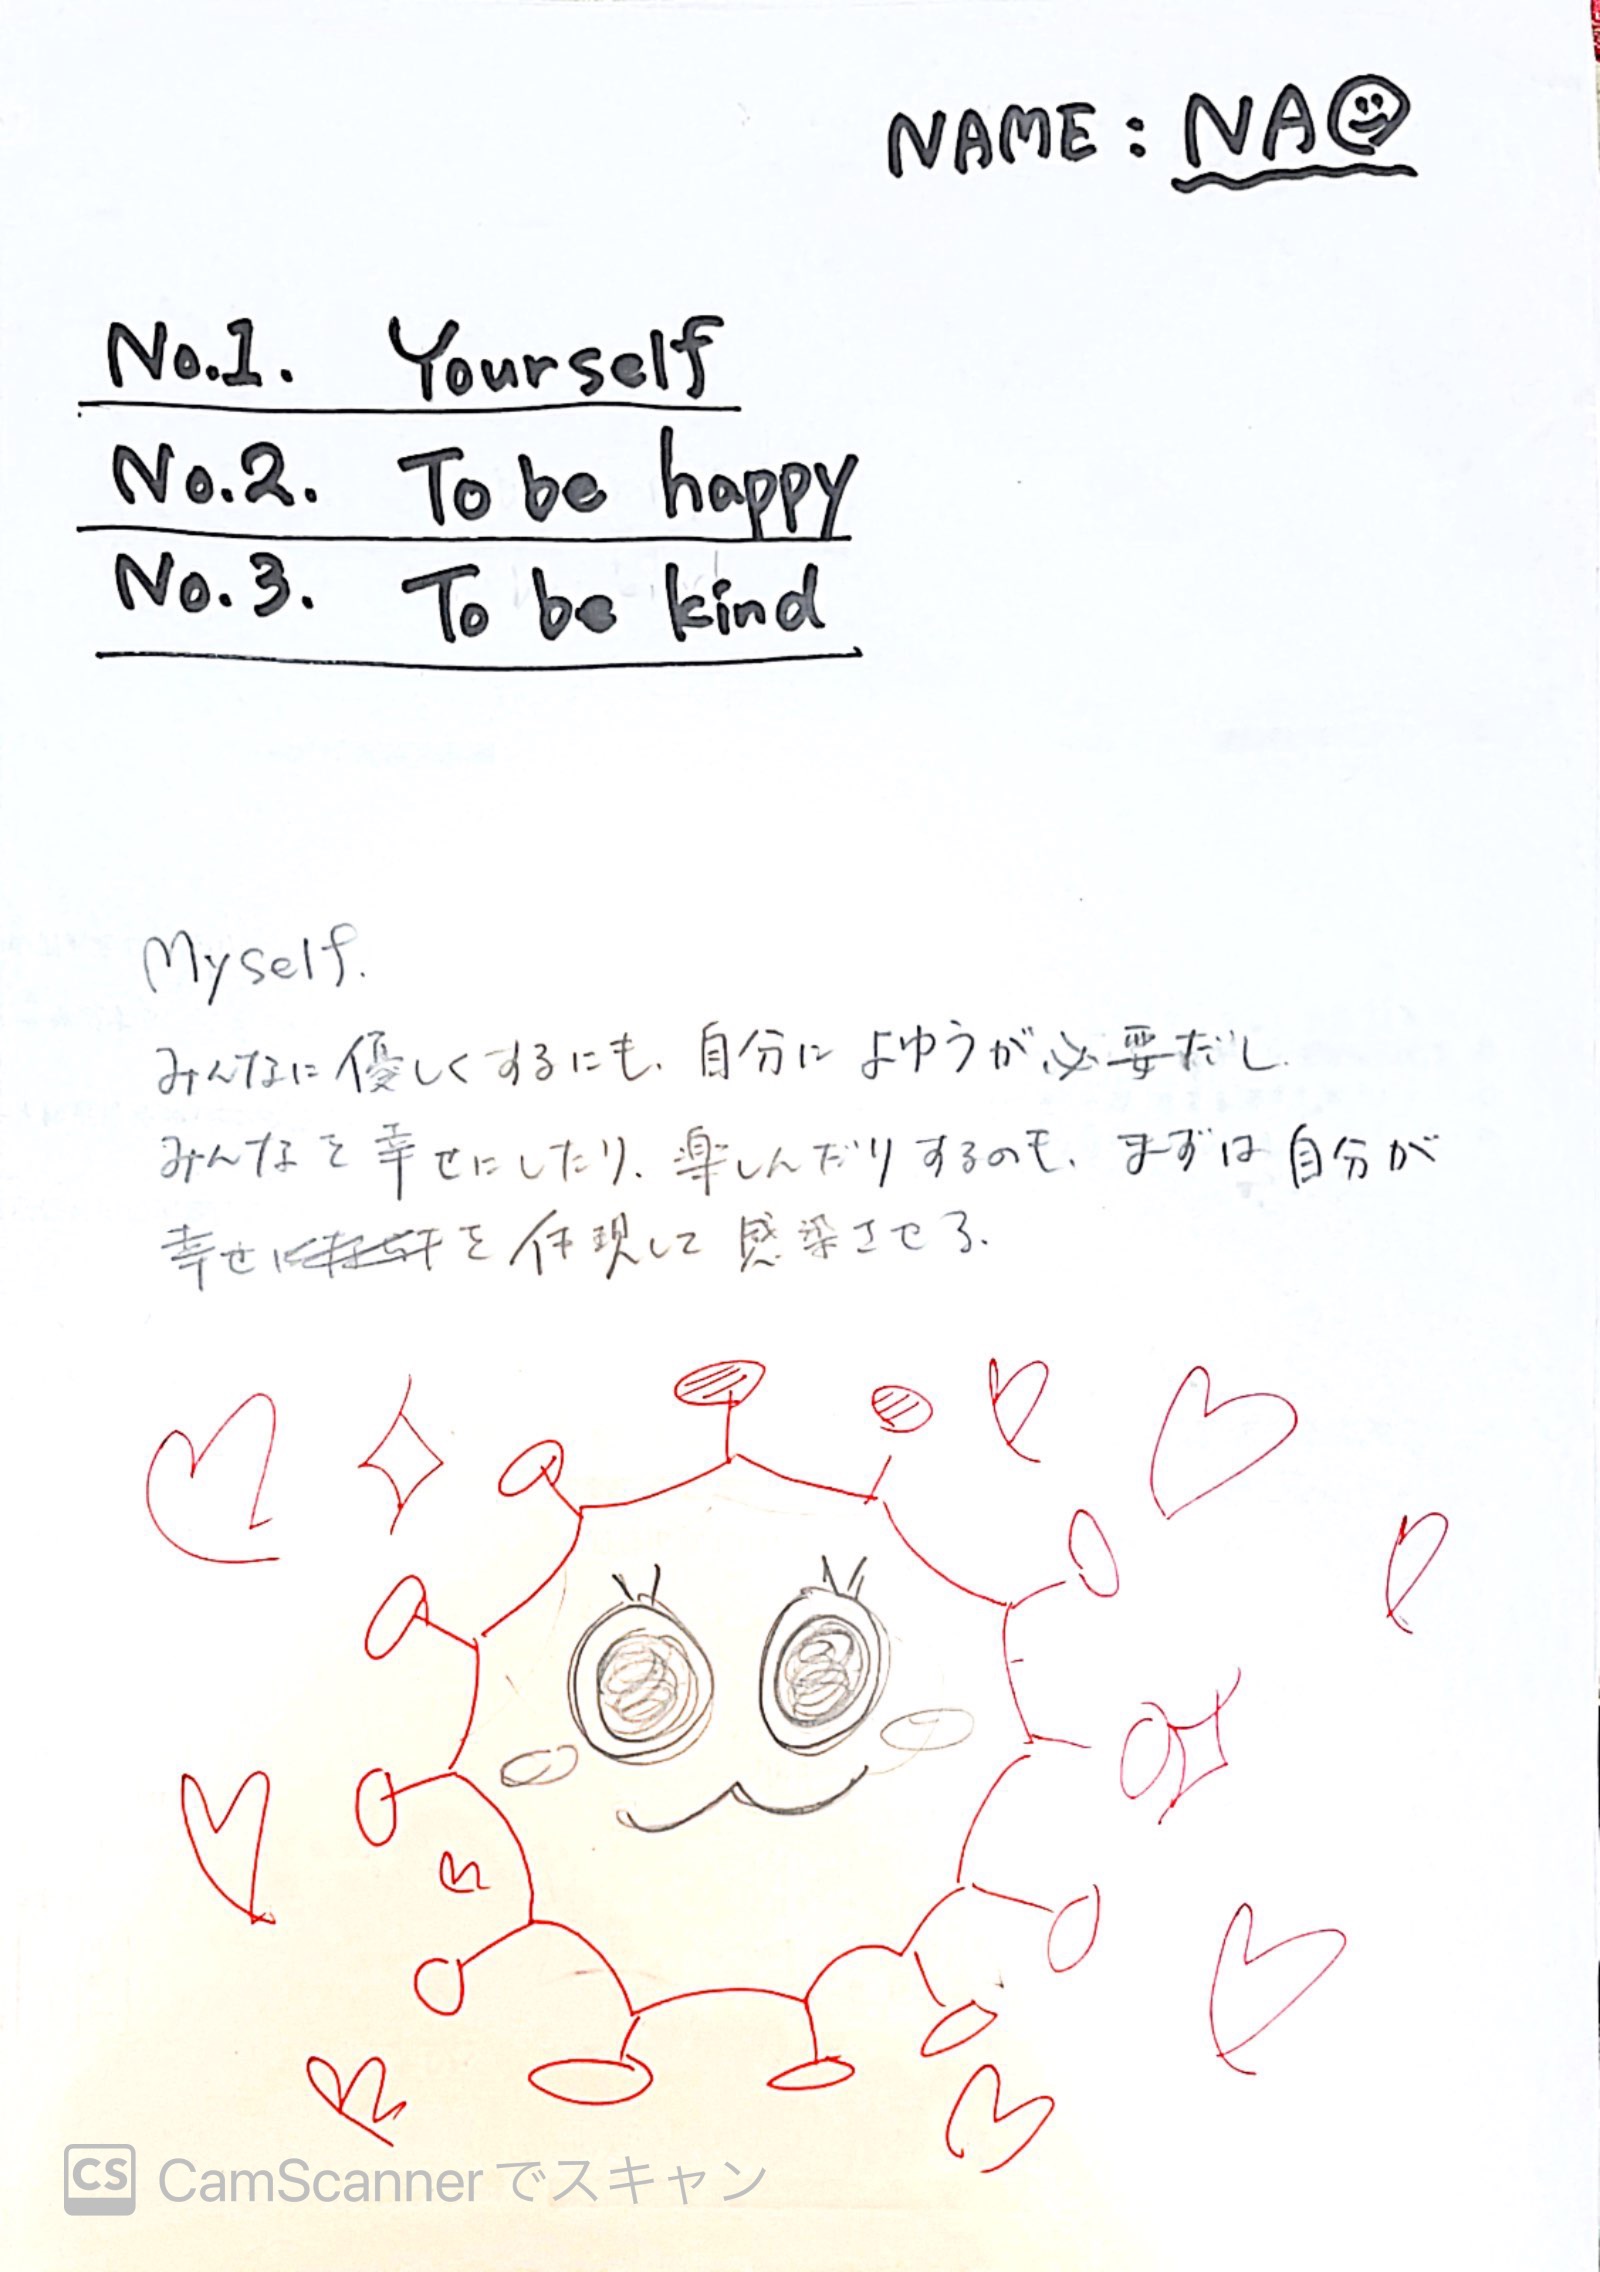 NAME: NAO
No.1. Yourself
No.2. To be happy
No.3. To be kind
Myself.
みんなに優しくするにも、自分によゆうが必要だし、
みんなを幸せにしたり、楽しんだりするのも、まずは自分が
幸せを体現して感染させる。
CS CamScannerでスキャン